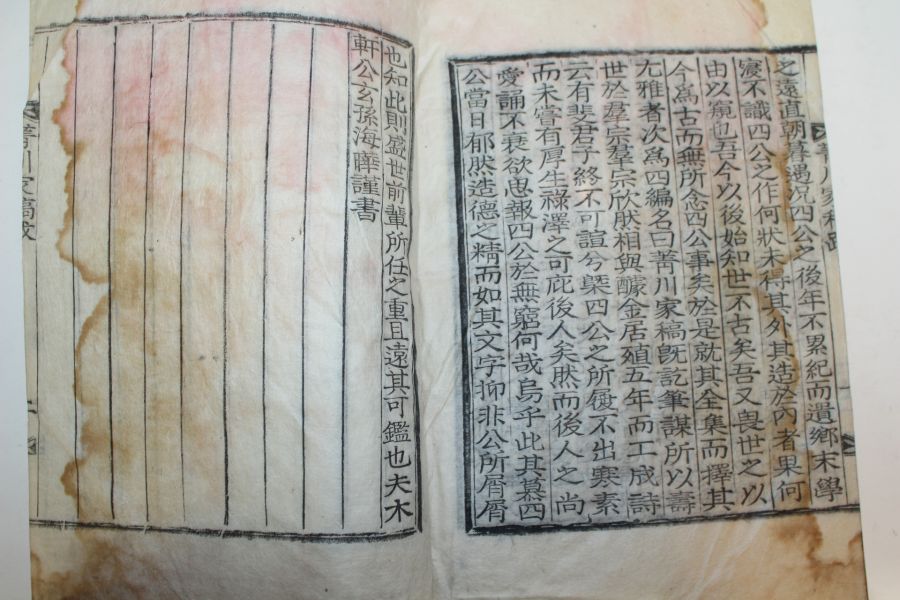 之遠直朝暮遇況四公之後年不累紀而遺鄉末學
寢不識四公之作何狀未得其外其造於內者果何
由以窺也吾今以後始知世不古矣吾又畏世之以
今爲古而無所念四公事矣於是就其全集而擇其
尤雅者次爲四編名曰菁川家稿旣訖筆謀所以壽
世於羣宗羣宗欣然相與醵金居殖五年而工成詩
云有斐君子終不可諠兮槩四公之所履不出寒素
而未嘗有厚生祿澤之可庇後人矣然而後人之尚
愛誦不衰欲思報四公於無窮何哉烏乎此其慕四
公當日郁然造德之精而如其文字抑非公所屑屑
也知此則盛世前輩所任之重且遠其可鑑也夫木
軒公玄孫海曄謹書
菁川家稿跋